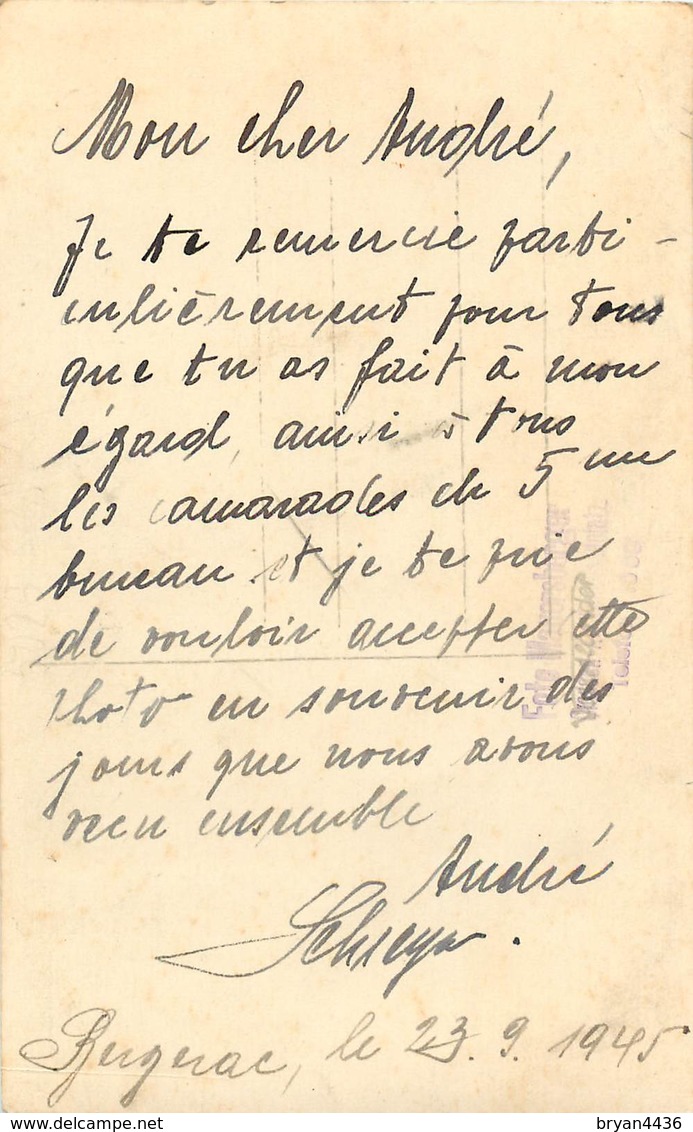 Mon cher André,
Je te remercie parti-
culièrement pour tous
que tu as fait à mon
égard, ainsi à tous
les camarades du 5me
bureau et je te prie
de vouloir accepter cette
photo en souvenir des
jours que nous avons
vecu ensemble
André
Bergerac, le 23.9.1945
Foto
bryan4436